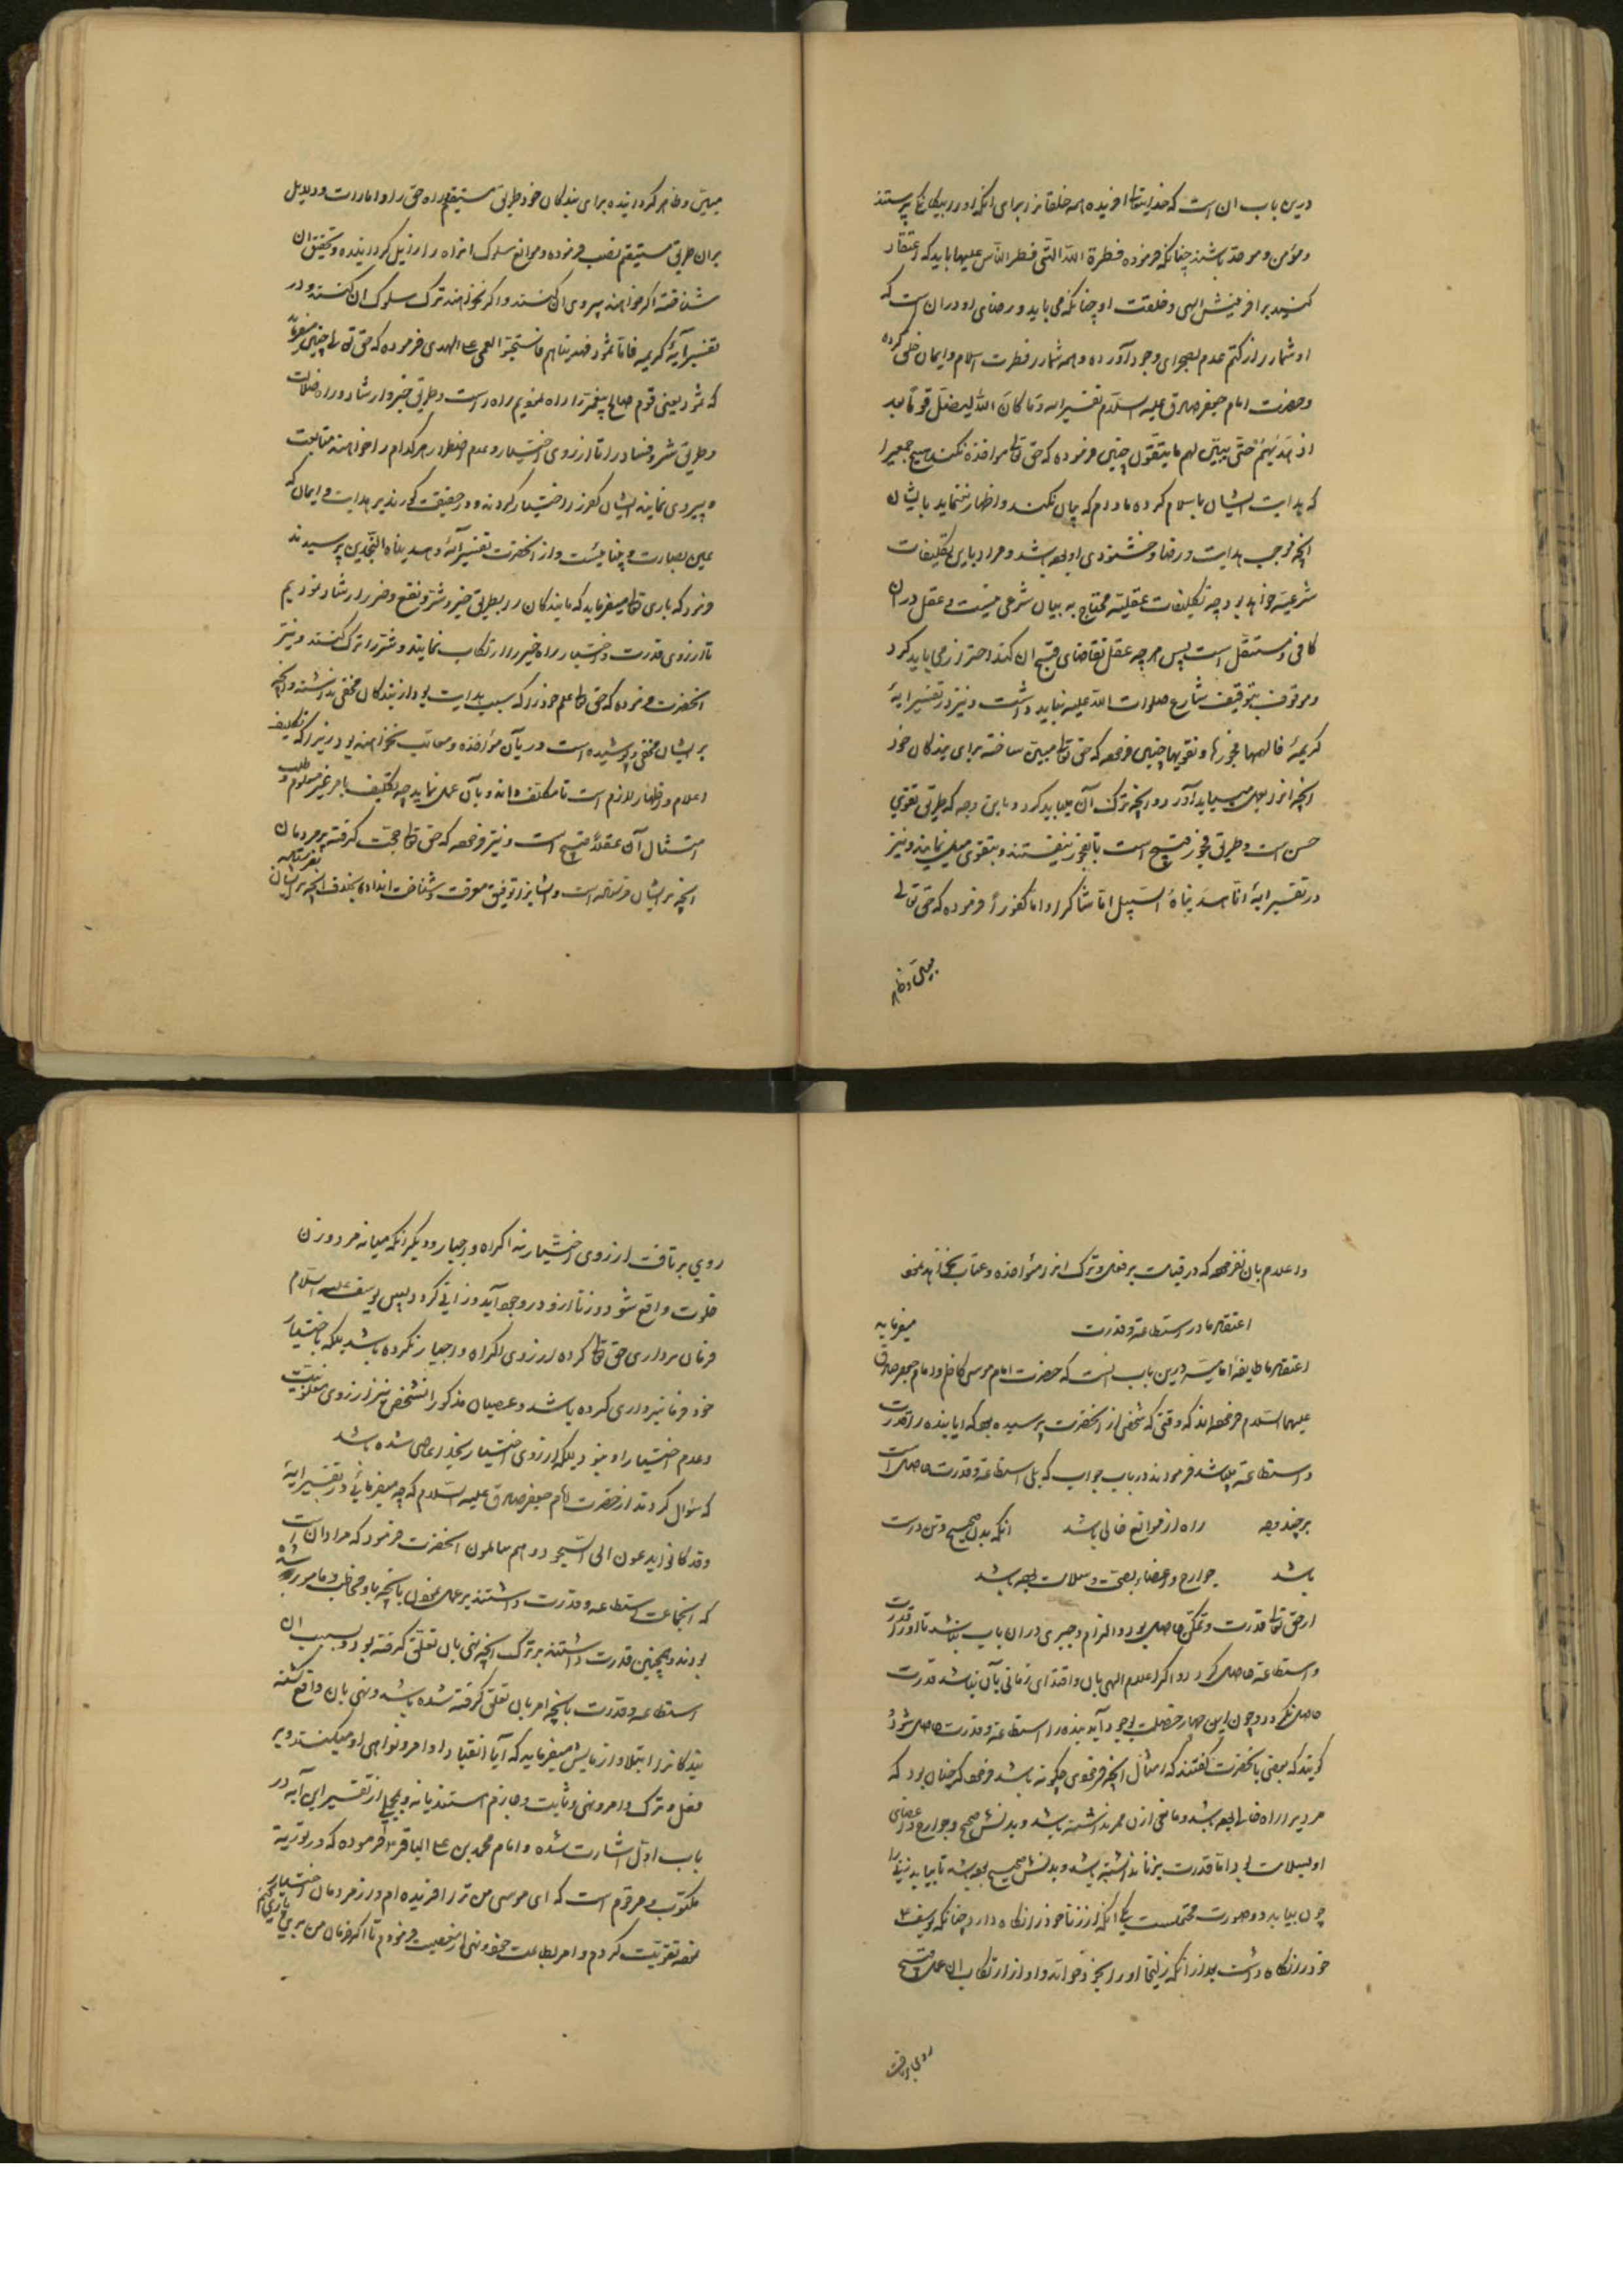 درین باب آن است که خدایتعالی افریده همه خلقانرا برای انکه او را بیکانکی پرستند
ومؤمن وموحد باشند چنانکه فرموده فطرة الله التی فطر الناس علیها باید که اعتقاد
کنید بر افرینش الهی وخلقت او چنانکه می باید و رضای او در ان است که
او شما را از کتم عدم بصحرای وجود آورده وهمه شما را بر فطرت اسلام وایمان خلق کرده
وحضرت امام جعفر صادق علیه السلام تفسیر ایه وما کان الله لیضل قوما بعد
اذ هدیهم حتی یبین لهم ما یتقون چنین فرموده که حق تعالی مواخذه نکند هیچ جمعیرا
که هدایت ایشان باسلام کرده مادام که بیان نکند واظهار ننماید بایشان
انچه موجب هدایت ورضا وخشنودی او بوده باشد ومراد باین تکلیفات
شرعیه خواهد بود چه تکلیفات عقلیه محتاج به بیان شرعی نیست وعقل در ان
کافی ومستقل است پس هر چه عقل تقاضای قبح ان کند احتراز می باید کرد
وموقوف بتوقیف شارع صلوات الله علیه نباید داشت ونیز در تفسیر ایهٔ
کریمهٔ فالهمها فجورها وتقویها چنین فرموده که حق تعالی مبین ساخته برای بندکان خود
انچه انرا بعمل میباید آورد وانچه ترک آن میباید کرد وباین وجه که طریق تقوی
حسن است وطریق فجور قبیح است تا بفجور نیفتند وبتقوی میل نمایند ونیز
در تفسیر ایهٔ انا هدیناه السبیل اما شاکرا واما کفورا فرموده که حق تعالی
مبین وظاهر
مبین وظاهر کردانیده برای بندکان خود طریق مستقیم راه حق را وامارات ودلایل
بران طریق مستقیم نصب فرموده وموانع سلوک انراه را زایل کردانیده وتحقیق ان
شناخته اکر خواهند پیروی ان کنند واکر نخواهند ترک سلوک ان کنند ودر
تفسیر آیهٔ کریمه فاما ثمود فهدیناهم فاستحبوا العمی علی الهدی فرموده که حق تعالی چنین میفرماید
که ثمود یعنی قوم صالح پیغمبر را راه نمودیم راه راست وطریق خیر وارشاد وراه ضلالت
وطریق شر وفساد را تا از روی اختیار وعدم اضطرار هر کدام را خواهند متابعت
وپیروی نمایند ایشان کفر را اختیار کردند ودر حقیقت کورند بر هدایت وایمان که
عین بصارت وبینائیست واز انحضرت تفسیر آیهٔ وهدیناه النجدین پرسیدند
فرمود که باری تعالی میفرماید که ما بندکان را بطریق خیر وشر ونفع وضرر ارشاد نمودیم
تا از روی قدرت واختیار راه خیر را ارتکاب نمایند وشر را ترک کنند ونیز
انحضرت فرموده که حق تعالی علم خود را که سبب هدایت بود از بندکان مخفی نداشته وانچه
بر ایشان مخفی وپوشیده است در بآن مؤاخذه ومعاتب نخواهند بود زیرا که تکلیف
اعلام واظهار لازم است تا مکلف داند وبآن عمل نماید چه تکلیف بامر غیر معلوم وطلب
امتثال آن عقلا قبیح است ونیز فرموده که حق تعالی حجت کرفته بر مردمان
انچه بر ایشان فرستاده است وایشانرا توفیق معرفت وشناخت انداده بخلاف انچه بر ایشان نفرستاده
واعلام بان نفرموده که در قیامت بر فعل وترک انرا مؤاخذه وعتاب نخواهد نمود
اعتقاد ما در استطاعة وقدرت میفرماید
اعتقاد ما طایفهٔ امامیه درین باب انست که حضرت امام موسی کاظم وامام جعفر صادق
علیهما السلام فرموده‌اند که وقتی که شخصی از انحضرت پرسیده بود که ایا بنده را قدرت
واستطاعة میباشد فرمودند در باب جواب که بلی استطاعة وقدرت حاصل است
بر چند وجه راه از موانع خالی باشد انکه بدن صحیح وتن درست
باشد جوارح واعضاء بصحت وسلامت بوده باشد
از حق تعالی قدرت وتمکن حاصل بود والزام وجبری در ان باب نباشد تا او را قدرت
واستطاعة حاصل کردد واکر اعلام الهی بان واقتدای زمانی بآن نباشد قدرت
حاصل نکردد وچون این چهار خصلت بوجود آید بنده را استطاعة وقدرت حاصل شود
کویند که بعضی بانحضرت کفتند که امثال انچه فرمودی چکونه باشد فرمود که چنان بود که
مردیرا راه خالی بوده باشد ومانعی از ان ممر نداشته باشد وبدنش صحیح وجوارح واعضای
او بسلامت بود اما قدرت بر زنا نداشته باشد وبدنش صحیح بوده باشد تا بیابد زنی را
چون بیابد دو صورت محتملست یکی انکه از زنا خود را نکاه دارد چنانکه یوسف ع
خود را نکاه داشت بعد از انکه زلیخا او را بخود خواند واو از ارتکاب ان عمل قبیح
روی برتافت
روی برتافت از روی اختیار نه اکراه واجبار ودیکر انکه میانه مرد وزن
خلوت واقع شود وزنا ازو در وجود آید وزانی کردد پس یوسف علیه السلام
فرمان برداری حق تعالی کرده از روی اکراه واجبار نکرده باشد بلکه باختیار
خود فرمانبرداری کرده باشد وعصیان مذکور انشخص نیز از روی مغلوبیت
وعدم اختیار او نبود بلکه از روی اختیار بخدا عاصی شده باشد
که سؤال کردند از حضرت امام جعفر صادق علیه السلام که چه میفرمائی در تفسیر ایهٔ
وقد کانوا یدعون الی السجود وهم سالمون انحضرت فرمود که مراد آن است
که انجماعت استطاعه وقدرت داشتند بر عمل نمودن بانچه باو مخاطب ومامور شده
بودند وهمچنین قدرت داشتند بر ترک انچه نهی بان تعلق کرفته بود وبسبب ان
استطاعه وقدرت بانچه امر بان تعلق کرفته شده باشد ونهی بان واقع کشته
بندکانرا ابتلا وازمایش میفرماید که آیا انقیاد اوامر ونواهی او میکنند وبر
فعل وترک وامر ونهی وثابت وجازم استند یا نه وبجملی از تفسیر این آیه در
باب اول اشارت شده وامام محمد بن علی الباقر فرموده که در توریة
مکتوب ومرقوم است که ای موسی من ترا افریده‌ام واز مردمان اختیار
نموده تقویت کردم وامر بطاعت خود ونهی از معصیت فرمودم تا اکر فرمان من بری یاری کنم